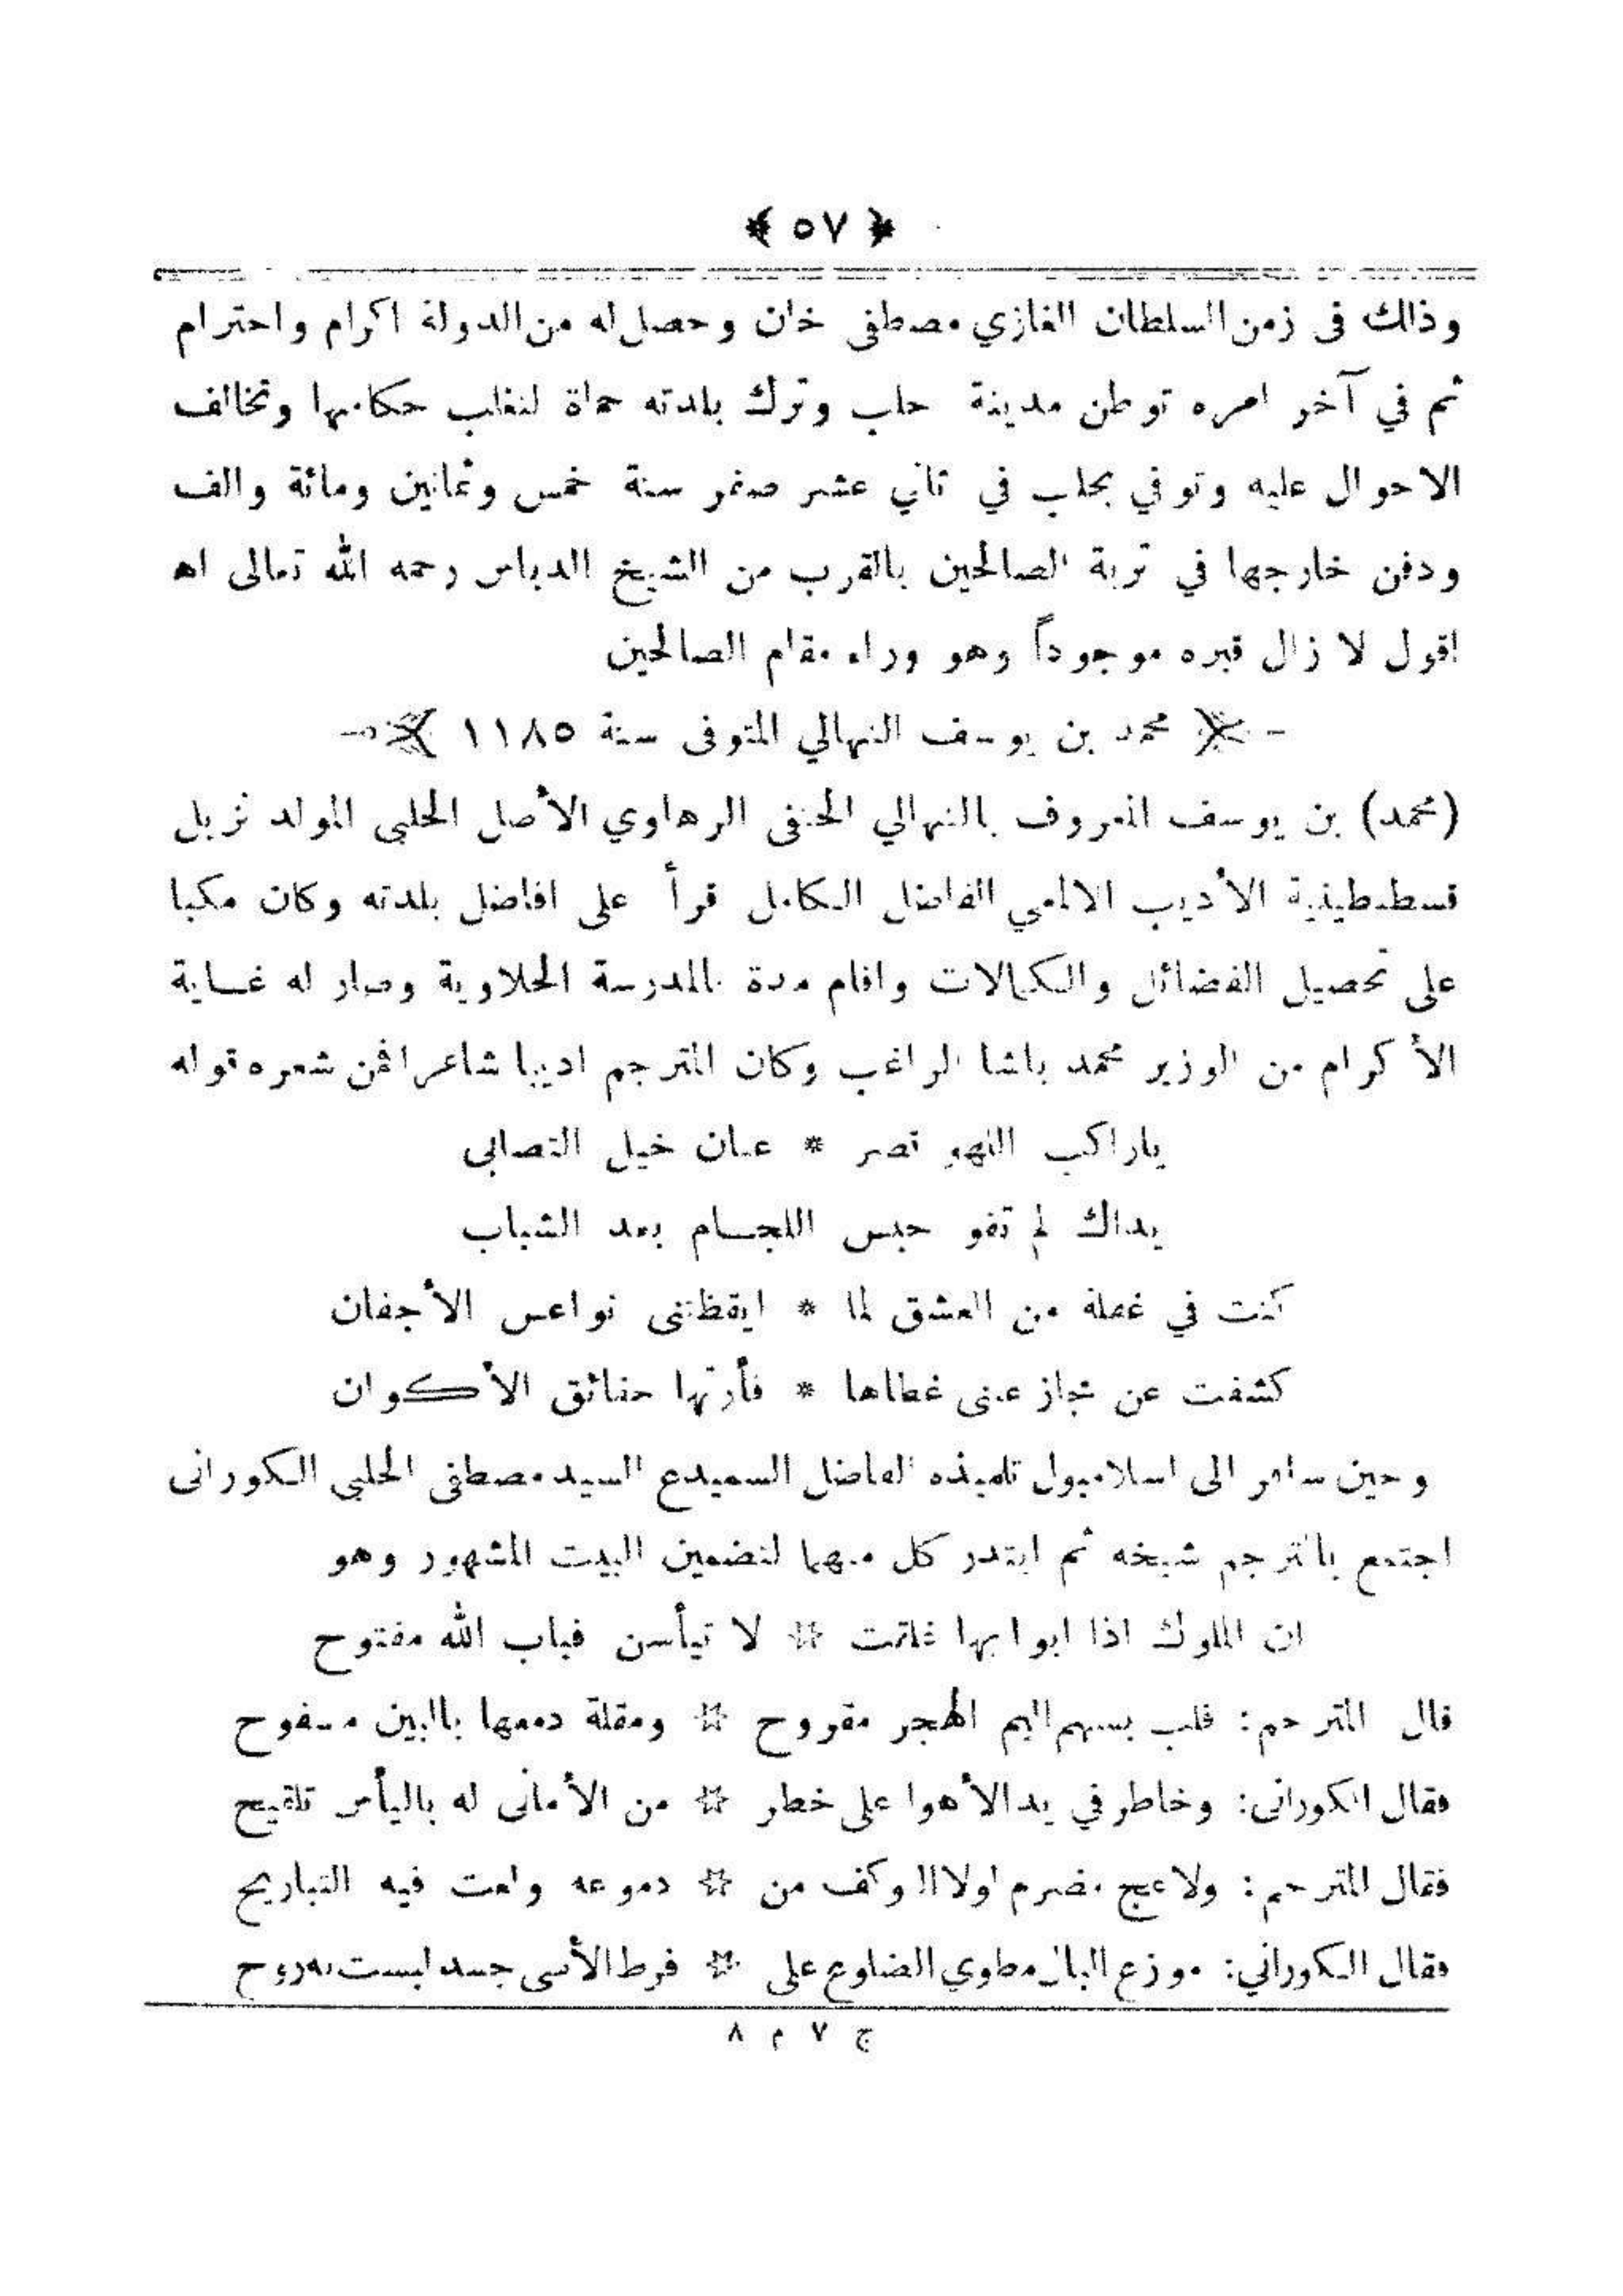 ﴿ ٥٧ ﴾
وذلك في زمن السلطان الغازي مصطفى خان وحصل له من الدولة اكرام واحترام
ثم في آخر امره توطن مدينة حلب وترك بلدته حماة لتغلب حكامها وتخالف
الاحوال عليه وتوفي بحلب في ثاني عشر صفر سنة خمس وثمانين ومائة والف
ودفن خارجها في تربة الصالحين بالقرب من الشيخ الدباس رحمه الله تعالى اه
اقول لا زال قبره موجوداً وهو وراء مقام الصالحين
﴿ محمد بن يوسف النهالي المتوفى سنة ١١٨٥ ﴾
(محمد) بن يوسف المعروف بالنهالي الحنفى الرهاوي الأصل الحلبى المولد نزيل
قسطنطينية الأديب الالمعي الفاضل الكامل قرأ على افاضل بلدته وكان مكبا
على تحصيل الفضائل والكمالات واقام مدة بالمدرسة الحلاوية وصار له غاية
الأكرام من الوزير محمد باشا الراغب وكان المترجم اديبا شاعرا فمن شعره قوله
ياراكب اللهو قصر * عنان خيل التصابى
يداك لم تقو حبس اللجام بعد الشباب
كنت في غفلة من العشق لما * ايقظتنى نواعس الأجفان
كشفت عن مجاز عنى غطاها * فأرتها حقائق الأكوان
وحين سافر الى اسلامبول تلميذه الفاضل السميدع السيد مصطفى الحلبي الكورانى
اجتمع بالمترجم شيخه ثم ابتدر كل منهما لتضمين البيت المشهور وهو
ان الملوك اذا ابوابها غلقت * لا تيأسن فباب الله مفتوح
قال المترجم: قلب بسهم اليم الهجر مقروح * ومقلة دمعها بالبين مسفوح
فقال الكورانى: وخاطر في يد الأهوا على خطر * من الأمانى له باليأس تلقيح
فقال المترجم: ولاعج مضرم لولا الوكف من * دموعه ولعت فيه التباريح
فقال الكوراني: موزع البال مطوي الضلوع على * فرط الأسى جسد ليست به روح
ج ٧ م ٨